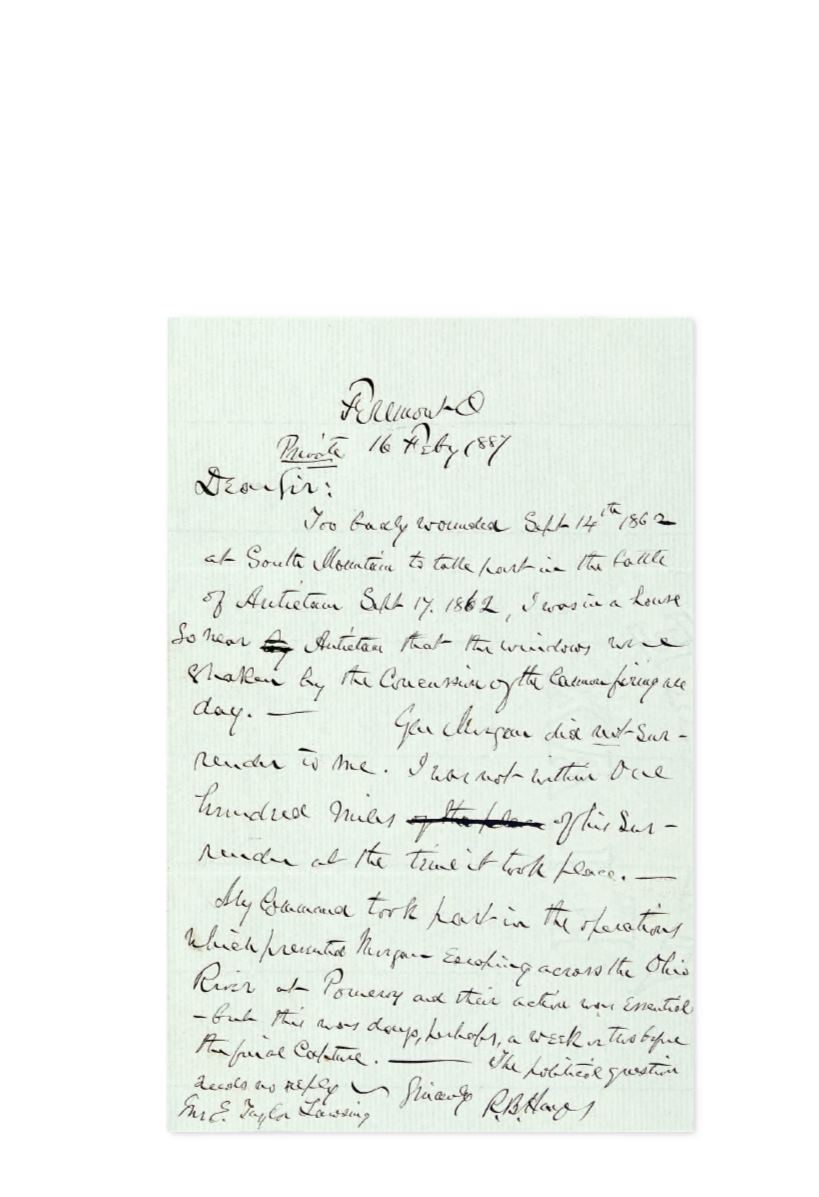 Fremont O
Private 16 Feby 1887
Dear Sir:
Too badly wounded Sept 14th 1862
at South Mountain to take part in the battle
of Antietam Sept 17. 1862, I was in a house
so near Antietam that the windows were
shaken by the concussion of the cannon firing all
day. — Gen Morgan did not sur-
render to me. I was not within one
hundred miles of the place of his sur-
render at the time it took place. —
My command took part in the operations
which prevented Morgan escaping across the Ohio
River at Pomeroy and their action was essential
- but this was days, perhaps, a week or two before
the final capture. — The political question
needs no reply — Sincerely R.B. Hayes
E. Taylor Lansing